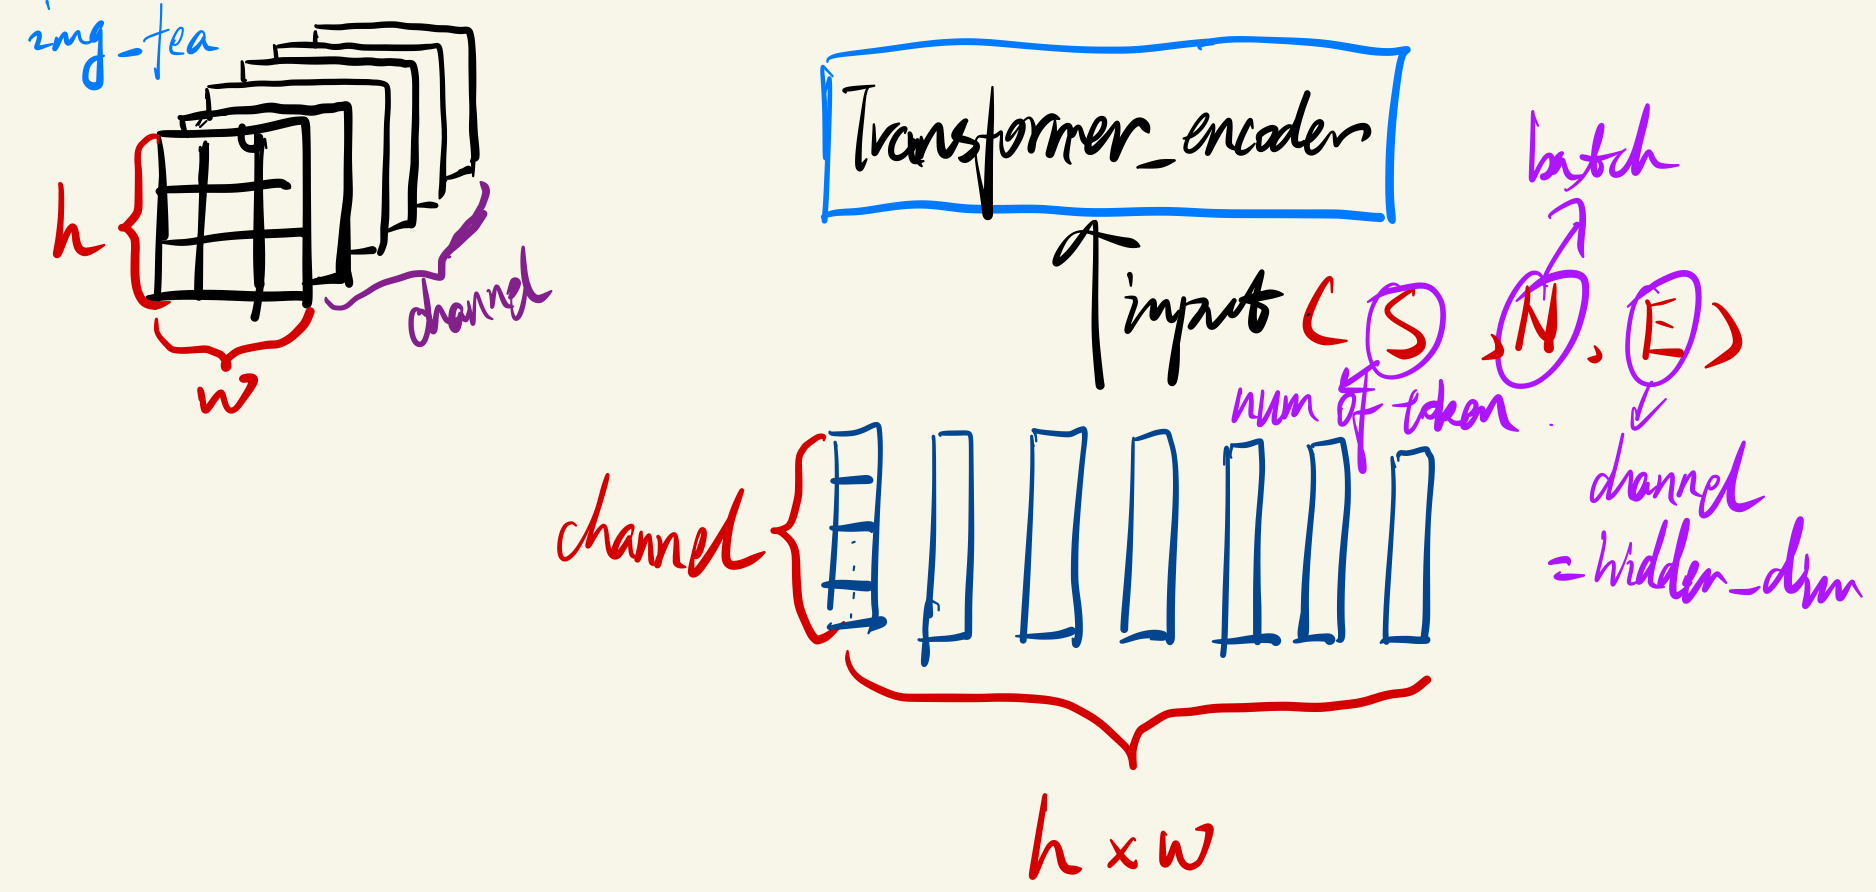 img_fea
h
w
channel
Transformer_encoder
batch
input (S, N, E)
num of token
channel
= hidden_dim
channel
h x w